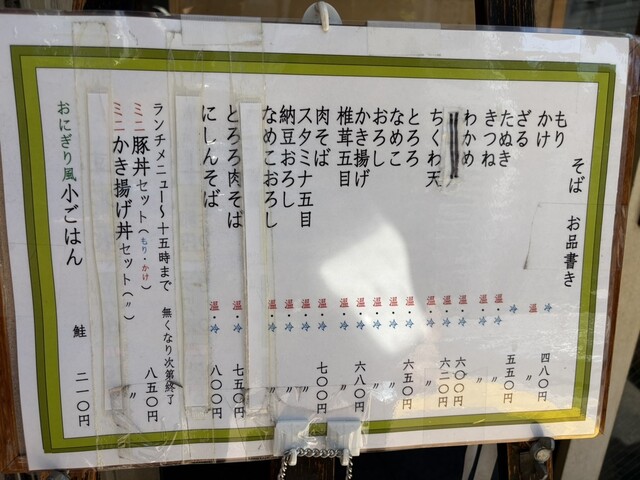 そば お品書き
もり 冷 四八〇円
かけ 温 〃
ざる 冷 五五〇円
たぬき 温・冷 〃
きつね 温・冷 〃
わかめ 温・冷 六〇〇円
温・冷 六二〇円
ちくわ天 温・冷 〃
とろろ 温・冷 六五〇円
なめこ 温・冷 〃
おろし 温・冷 〃
かき揚げ 温・冷 六八〇円
椎茸五目 温・冷 〃
肉そば 温・冷 七〇〇円
スタミナ五目 温・冷 〃
納豆おろし 温・冷 〃
なめこおろし 温・冷 〃
とろろ肉そば 温・冷 七五〇円
にしんそば 温・冷 八〇〇円
ランチメニュー～十五時まで 無くなり次第終了
ミニ豚丼セット(もり・かけ) 八五〇円
ミニかき揚げ丼セット(〃) 〃
おにぎり風小ごはん 鮭 二一〇円